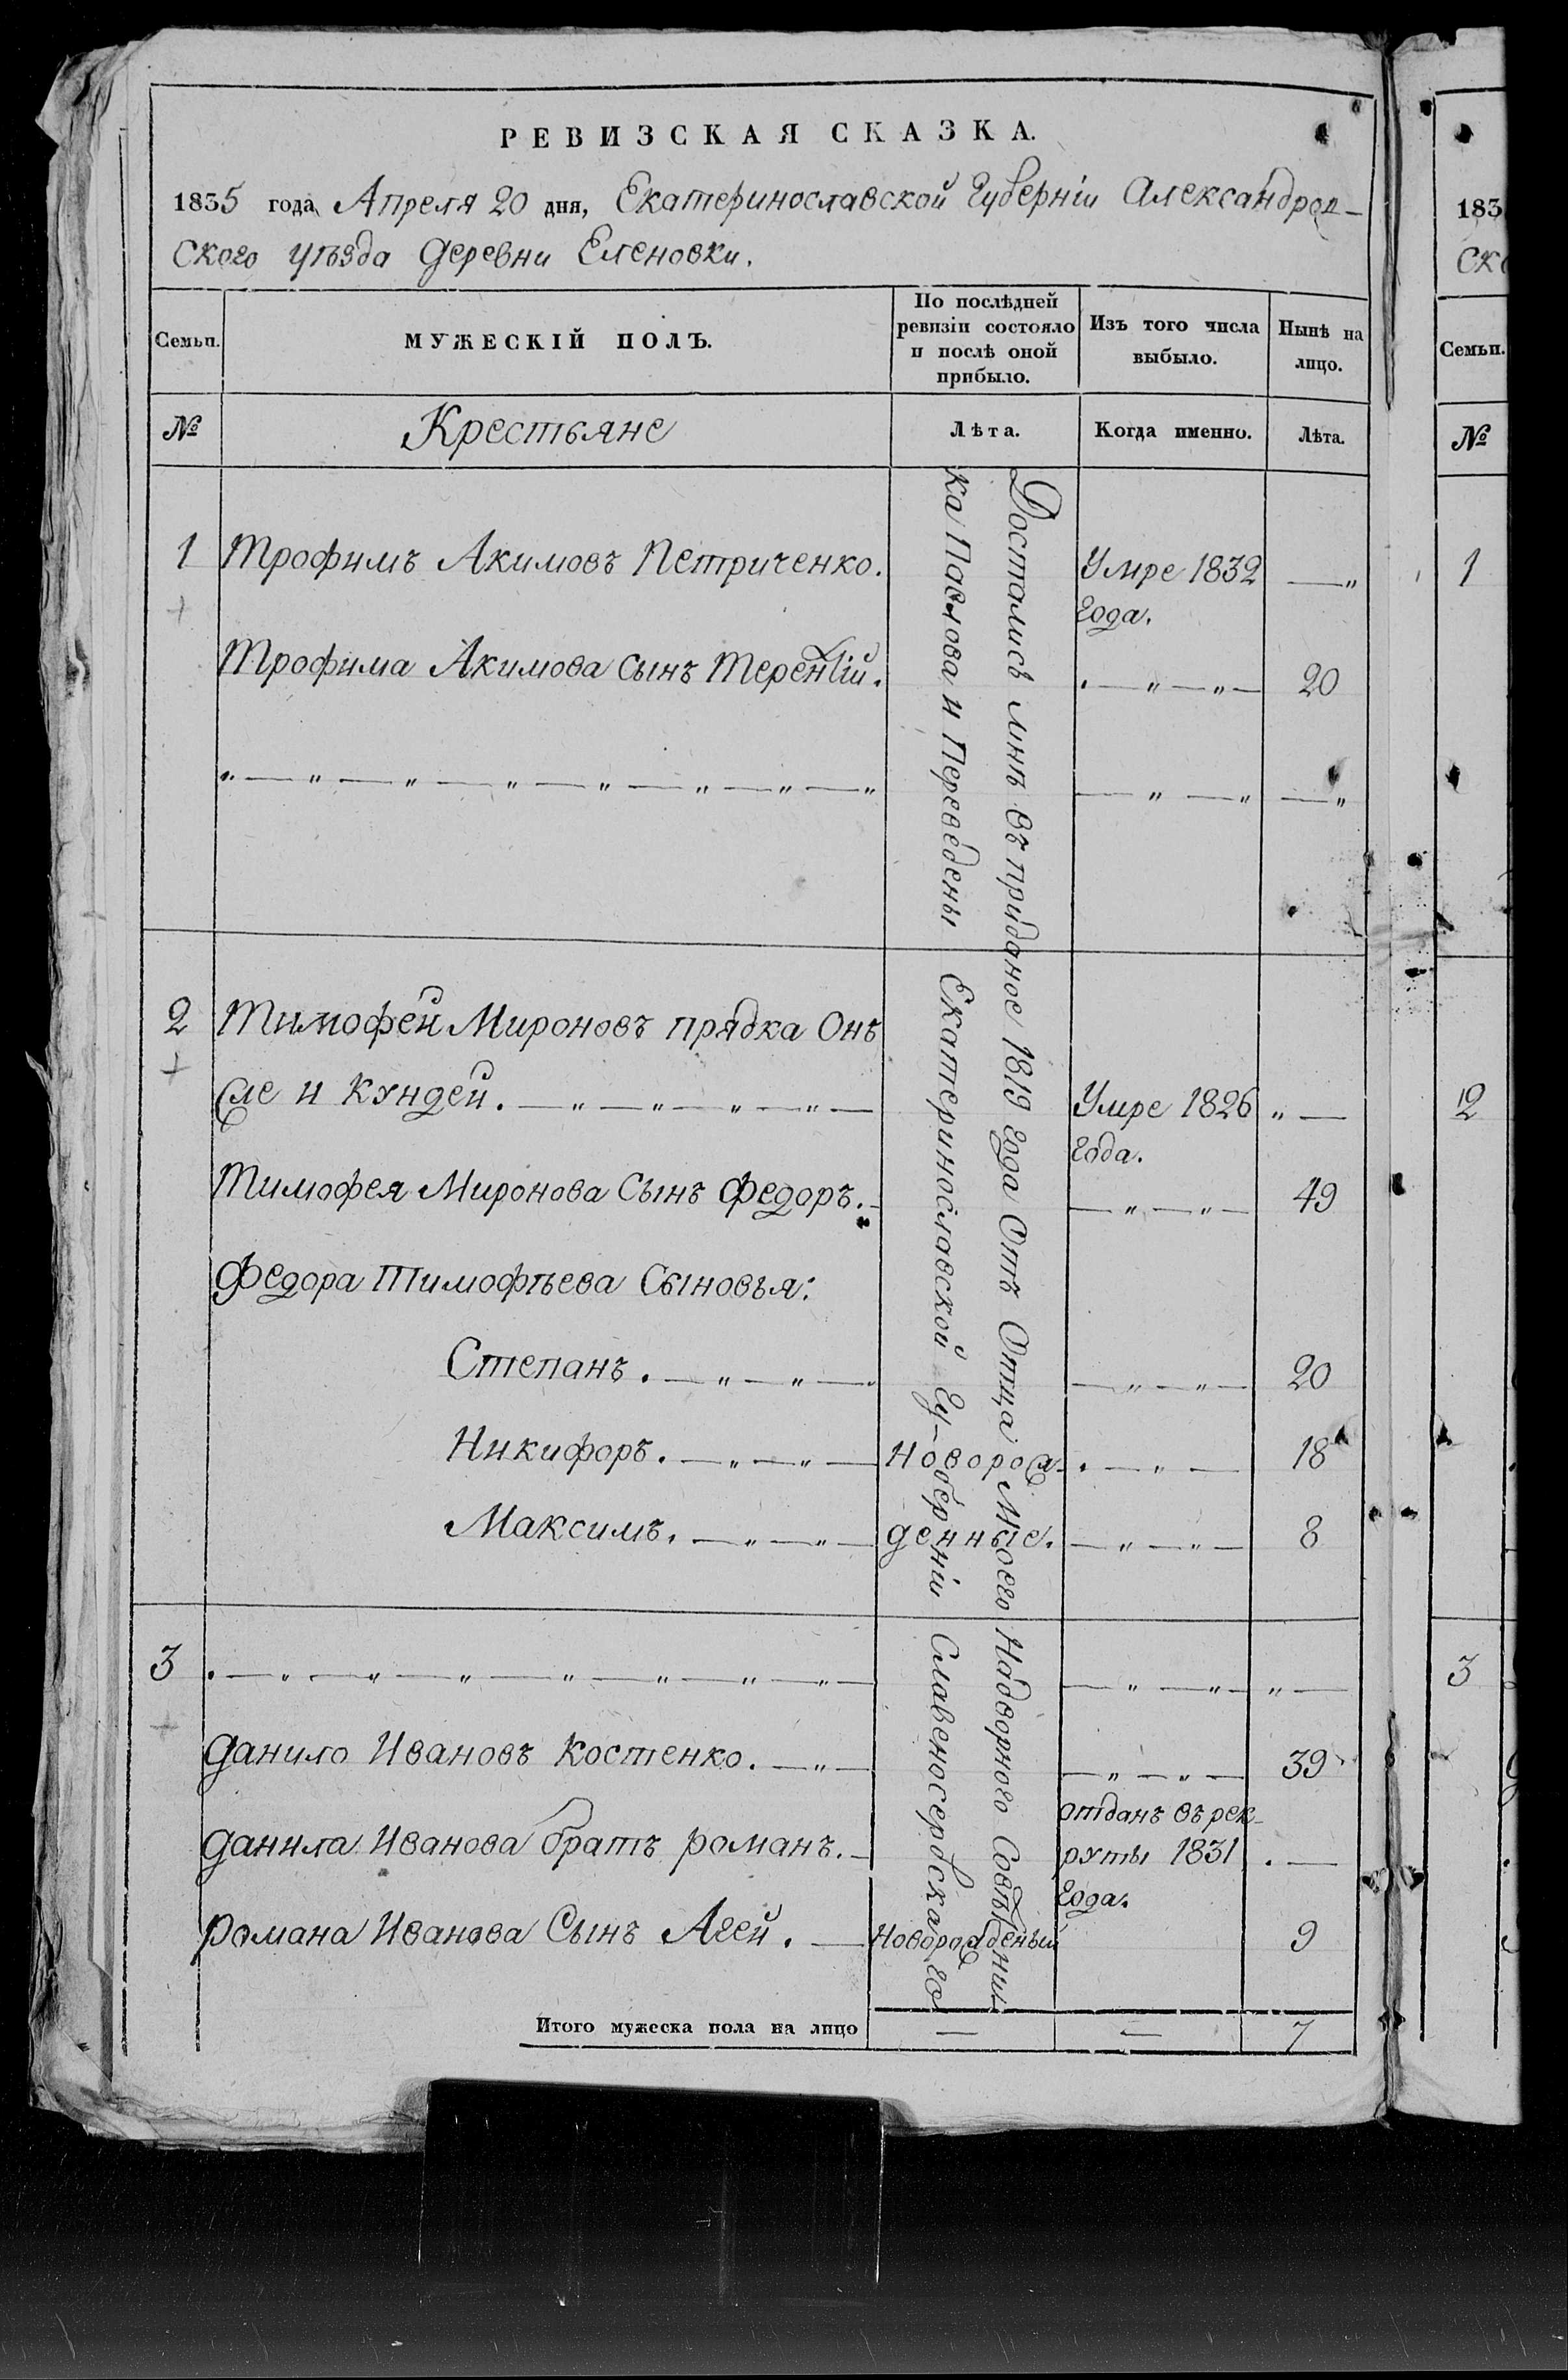 РЕВИЗСКАЯ СКАЗКА.
1835 года, Апреля 20 дня, Екатеринославской Губерніи Александров-
ского уѣзда Деревни Еленовки.
Семьи.
МУЖЕСКІЙ ПОЛЪ.
По послѣдней
ревизіи состояло
и послѣ оной
прибыло.
Изъ того числа
выбыло.
Нынѣ на
лицо.
№
Крестьяне
Лѣта.
Когда именно.
Лѣта.
Досталисѣ мнѣ въ приданое 1819 Года Отъ Отца Моего Надворного Совѣтни-
ка Павлова и Переведены Екатеринославской Гу-берніи Славеносербскаго
1 Трофимъ Акимовъ Петриченко. Умре 1832 — „
Года.
Трофима Акимова Сынъ Терентій. . — „ — „ — 20
„ — „ — „ — „ — „ — „ — „ — „ — „ — „ — „
2 Тимофей Мироновъ прядка Онъ
же и Кундей. — „ — „ — „ — „ — Умре 1826 „ —
Года.
Тимофея Миронова Сынъ Федоръ. — — „ — „ — 49
Федора Тимофѣева Сыновья:
Степанъ. — „ — „ — — „ — „ — 20
Никифоръ. — „ — „ — Новорож- . — „ — 18
Максимъ. — „ — „ — денные. — „ — „ — 8
3 . — „ — „ — „ — „ — „ — „ — „ — — „ — „ — „ —
Данило Ивановъ Костенко. — „ — — „ — „ — 39
Данила Иванова братъ романъ. — отданъ въ рек-
руты 1831 . —
Года.
романа Иванова Сынъ Агей. — Новорожденый 9
Итого мужеска пола на лицо — — 7
183
ск
Семьи.
№
1
2
3